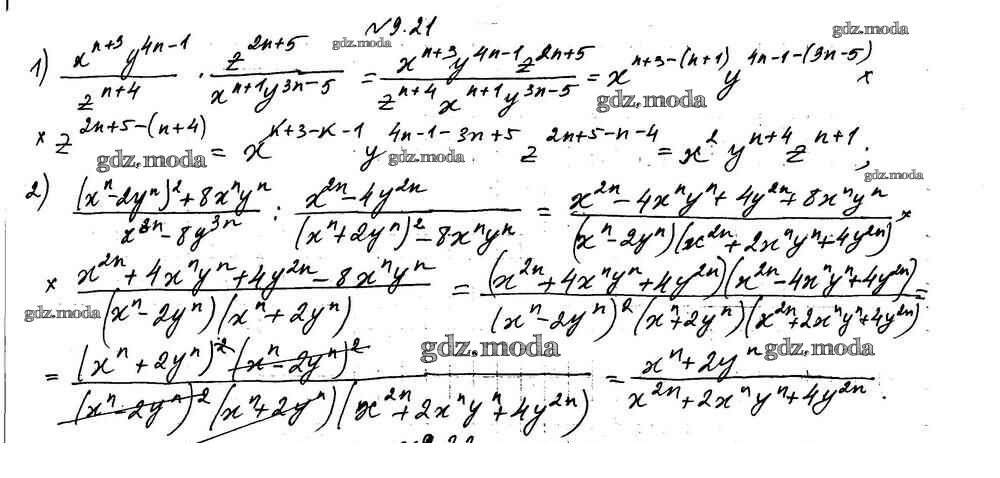 №9.21
gdz.moda gdz.moda
1) x^{n+3}y^{4n-1}/z^{n+4} · z^{2n+5}/x^{n+1}y^{3n-5} = x^{n+3}y^{4n-1}z^{2n+5}/z^{n+4}x^{n+1}y^{3n-5} = x^{n+3-(n+1)} y^{4n-1-(3n-5)} ×
gdz.moda
× z^{2n+5-(n+4)} = x^{n+3-n-1} y^{4n-1-3n+5} z^{2n+5-n-4} = x^2 y^{n+4} z^{n+1};
gdz.moda gdz.moda gdz.moda
2) (x^n-2y^n)^2+8x^ny^n/x^{3n}-8y^{3n} : x^{2n}-4y^{2n}/(x^n+2y^n)^2-8x^ny^n = x^{2n}-4x^ny^n+4y^{2n}+8x^ny^n/(x^n-2y^n)(x^{2n}+2x^ny^n+4y^{2n}) ×
× x^{2n}+4x^ny^n+4y^{2n}-8x^ny^n/(x^n-2y^n)(x^n+2y^n) = (x^{2n}+4x^ny^n+4y^{2n})(x^{2n}-4x^ny^n+4y^{2n})/(x^n-2y^n)^2(x^n+2y^n)(x^{2n}+2x^ny^n+4y^{2n}) =
gdz.moda
= (x^n+2y^n)^2(x^n-2y^n)^2/(x^n-2y^n)^2(x^n+2y^n)(x^{2n}+2x^ny^n+4y^{2n}) = x^n+2y^n/x^{2n}+2x^ny^n+4y^{2n}.
gdz.moda gdz.moda